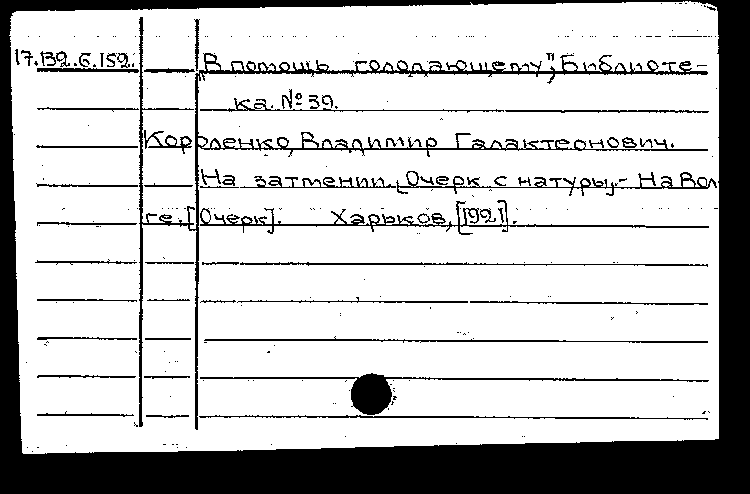 17.139.б.152. „В помощь голодающему", Библиоте-
ка. № 39.
Короленко, Владимир Галактеонович.
На затмении. [Очерк с натуры]. - На Вол
ге. [Очерк]. Харьков, [1921].